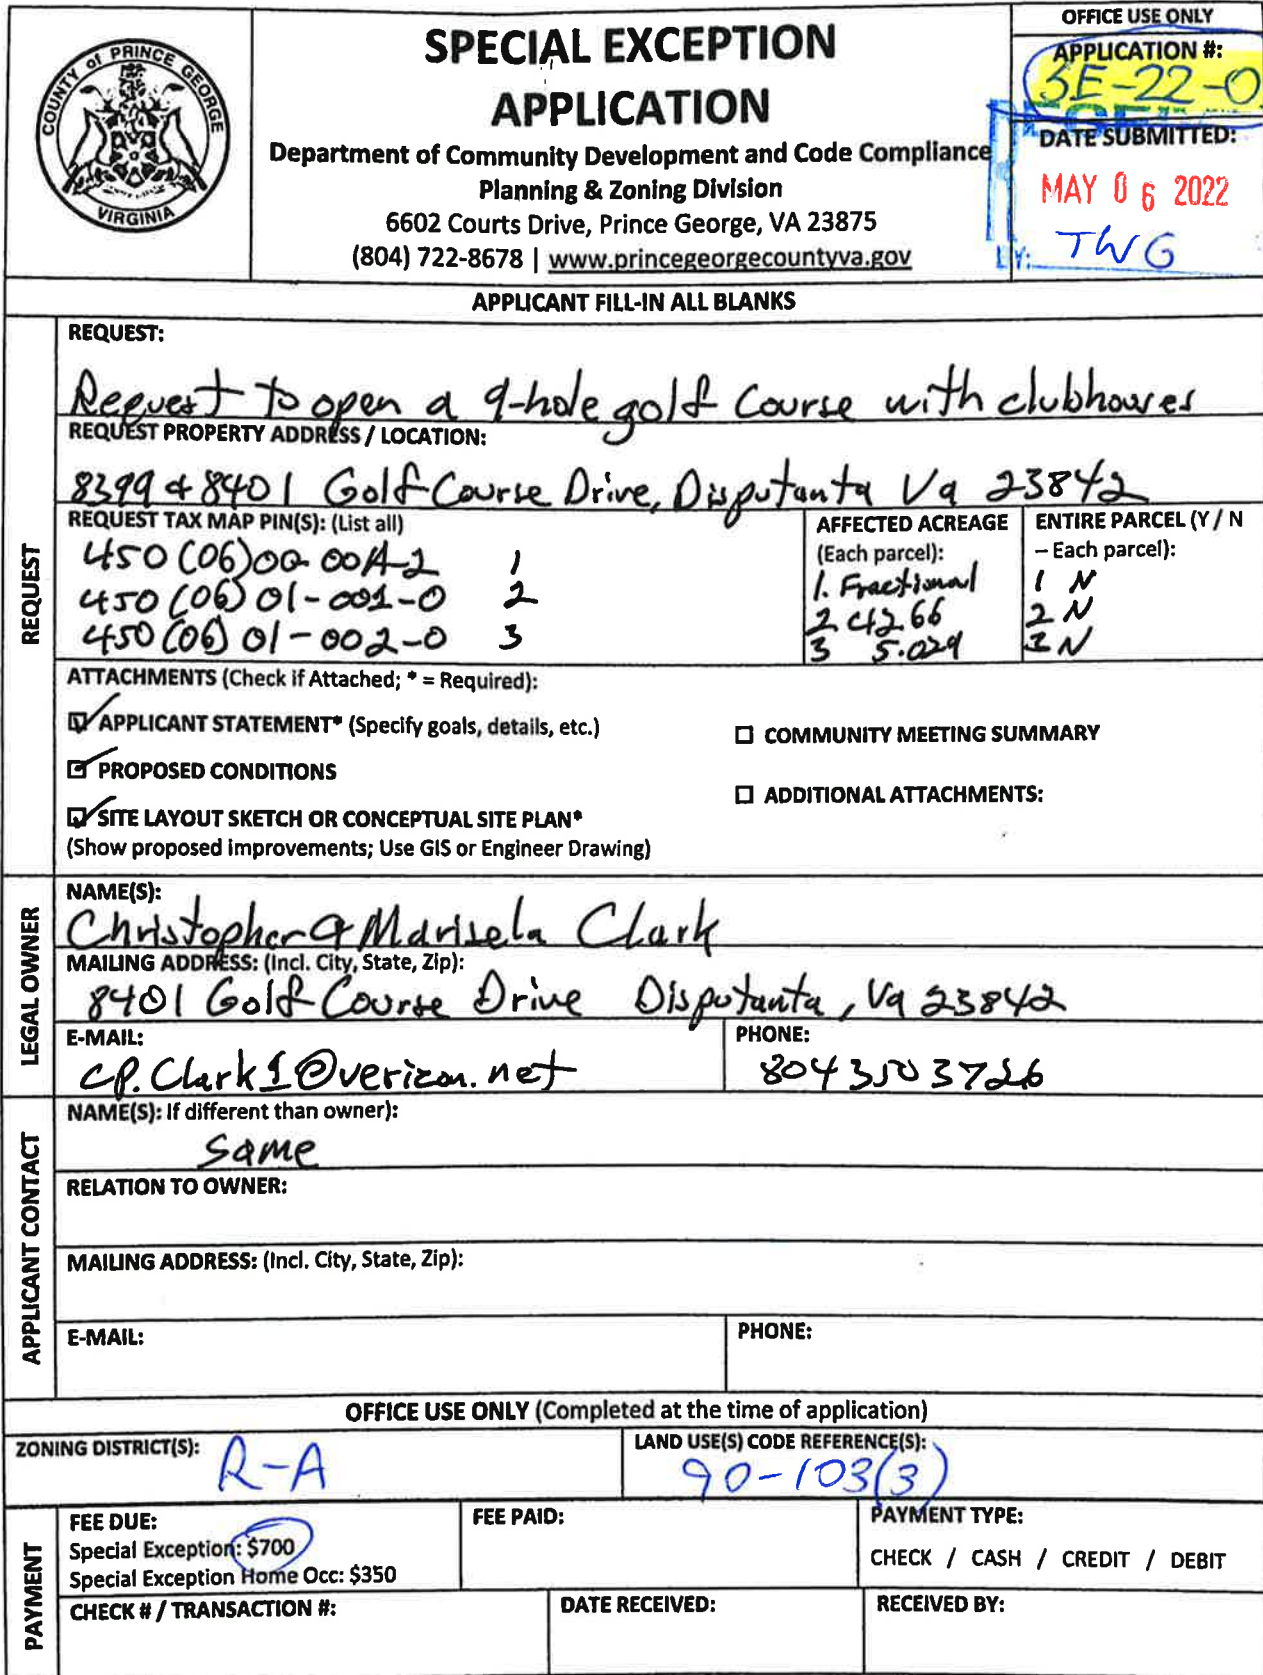 COUNTY of PRINCE GEORGE
VIRGINIA
SPECIAL EXCEPTION
APPLICATION
Department of Community Development and Code Compliance
Planning & Zoning Division
6602 Courts Drive, Prince George, VA 23875
(804) 722-8678 | www.princegeorgecountyva.gov
OFFICE USE ONLY
APPLICATION #:
SE-22-0
DATE SUBMITTED:
MAY 06 2022
BY: TWG
APPLICANT FILL-IN ALL BLANKS
REQUEST
REQUEST:
Request to open a 9-hole golf course with clubhouses
REQUEST PROPERTY ADDRESS / LOCATION:
8399 & 8401 Golf Course Drive, Disputanta Va 23842
REQUEST TAX MAP PIN(S): (List all)
450(06)00-00A-2 1
450(06)01-001-0 2
450(06)01-002-0 3
AFFECTED ACREAGE
(Each parcel):
1. Fractional
2 42.66
3 5.029
ENTIRE PARCEL (Y / N
– Each parcel):
1 N
2 N
3 N
ATTACHMENTS (Check if Attached; * = Required):
APPLICANT STATEMENT* (Specify goals, details, etc.)
PROPOSED CONDITIONS
SITE LAYOUT SKETCH OR CONCEPTUAL SITE PLAN*
(Show proposed improvements; Use GIS or Engineer Drawing)
COMMUNITY MEETING SUMMARY
ADDITIONAL ATTACHMENTS:
LEGAL OWNER
NAME(S):
Christopher & Marisela Clark
MAILING ADDRESS: (Incl. City, State, Zip):
8401 Golf Course Drive Disputanta, Va 23842
E-MAIL:
cp.Clark1@verizon.net
PHONE:
8043503726
APPLICANT CONTACT
NAME(S): If different than owner):
Same
RELATION TO OWNER:
MAILING ADDRESS: (Incl. City, State, Zip):
E-MAIL:
PHONE:
OFFICE USE ONLY (Completed at the time of application)
ZONING DISTRICT(S):
R-A
LAND USE(S) CODE REFERENCE(S):
90-103(3)
PAYMENT
FEE DUE:
Special Exception: $700
Special Exception Home Occ: $350
FEE PAID:
PAYMENT TYPE:
CHECK / CASH / CREDIT / DEBIT
CHECK # / TRANSACTION #:
DATE RECEIVED:
RECEIVED BY: